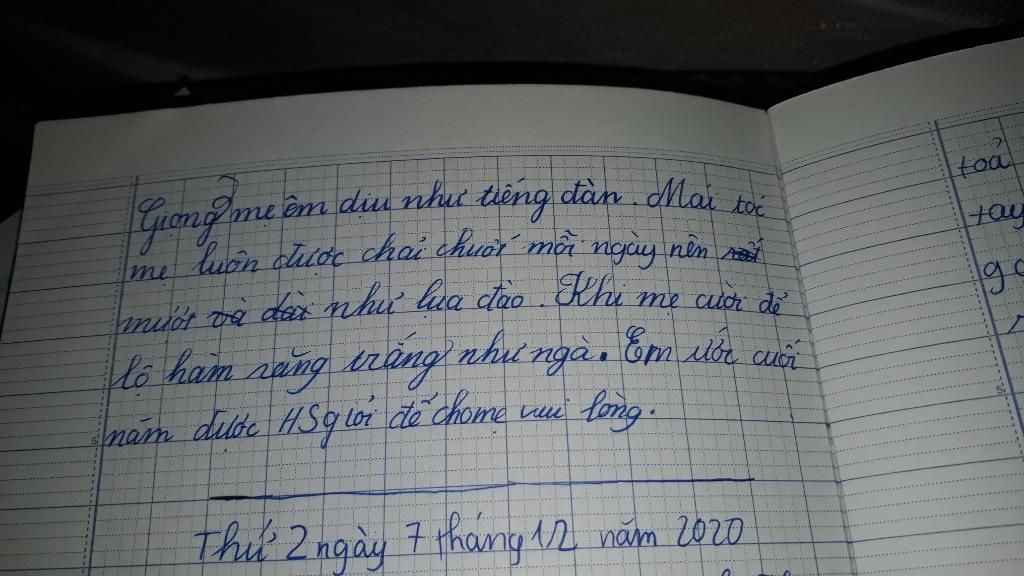 Giọng mẹ êm dịu như tiếng đàn. Mái tóc
mẹ luôn được chải chuốt mỗi ngày nên
mượt và dài như lụa đào. Khi mẹ cười để
lộ hàm răng trắng như ngà. Em ước cuối
năm được HS giỏi để cho mẹ vui lòng.
Thứ 2 ngày 7 tháng 12 năm 2020
toả
tay